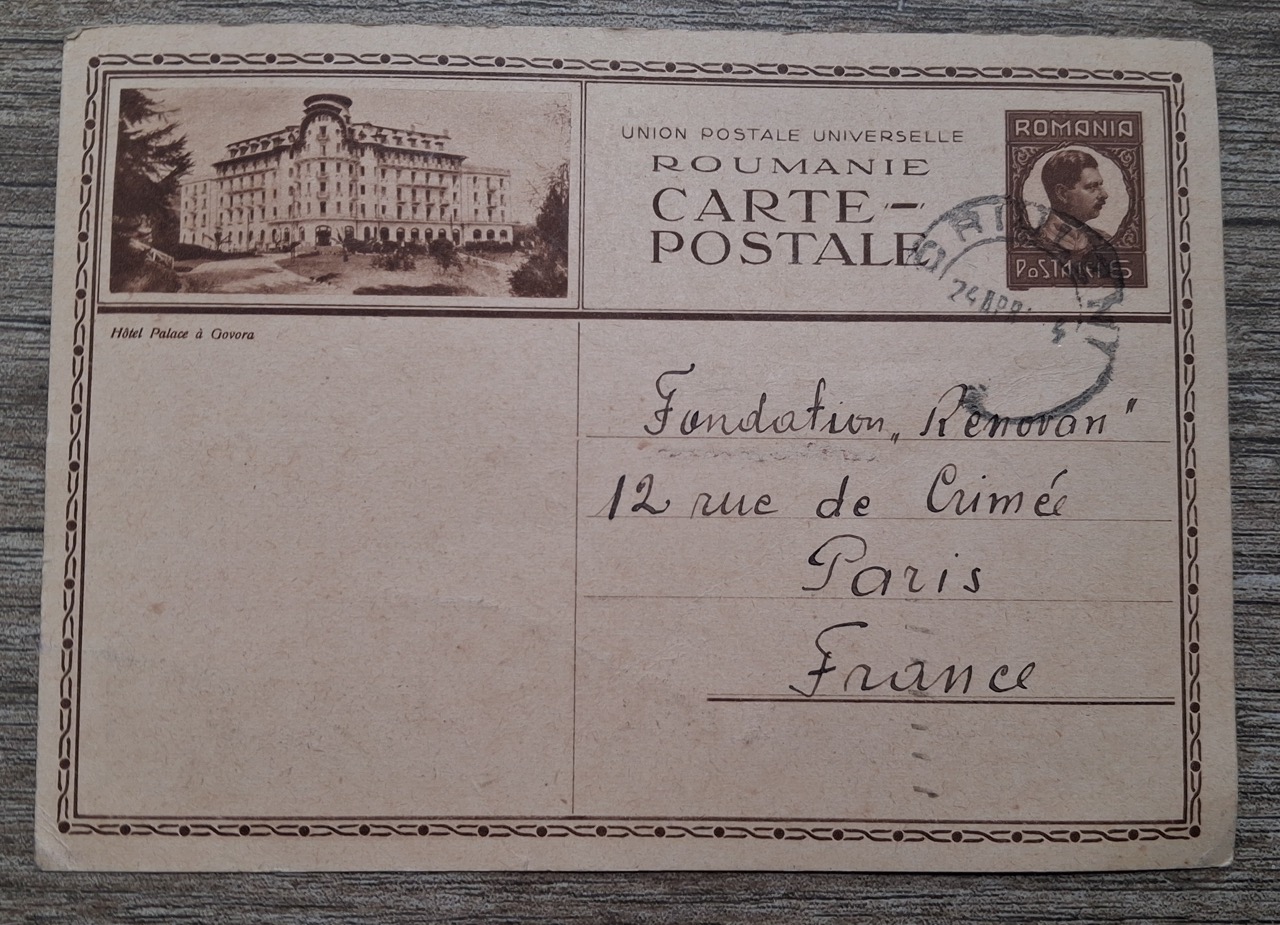 UNION POSTALE UNIVERSELLE
ROUMANIE
CARTE-
POSTALE
ROMANIA
POSTA LEI 6
24 APR
Hôtel Palace à Govora
Fondation „Renovan"
12 rue de Crimée
Paris
France